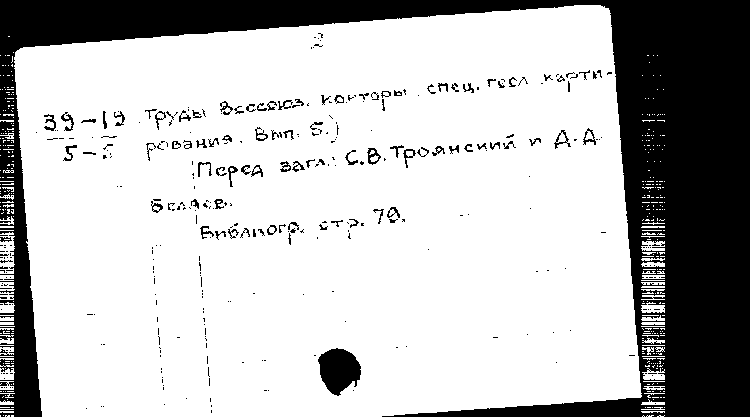 2
39-19 Труды Всесоюз. конторы спец. геол карти-
5-5 рования. Вып. 5.)
Перед загл.: С.В.Троянский и Д.Д.
Беляев.
Библиогр. стр. 79.